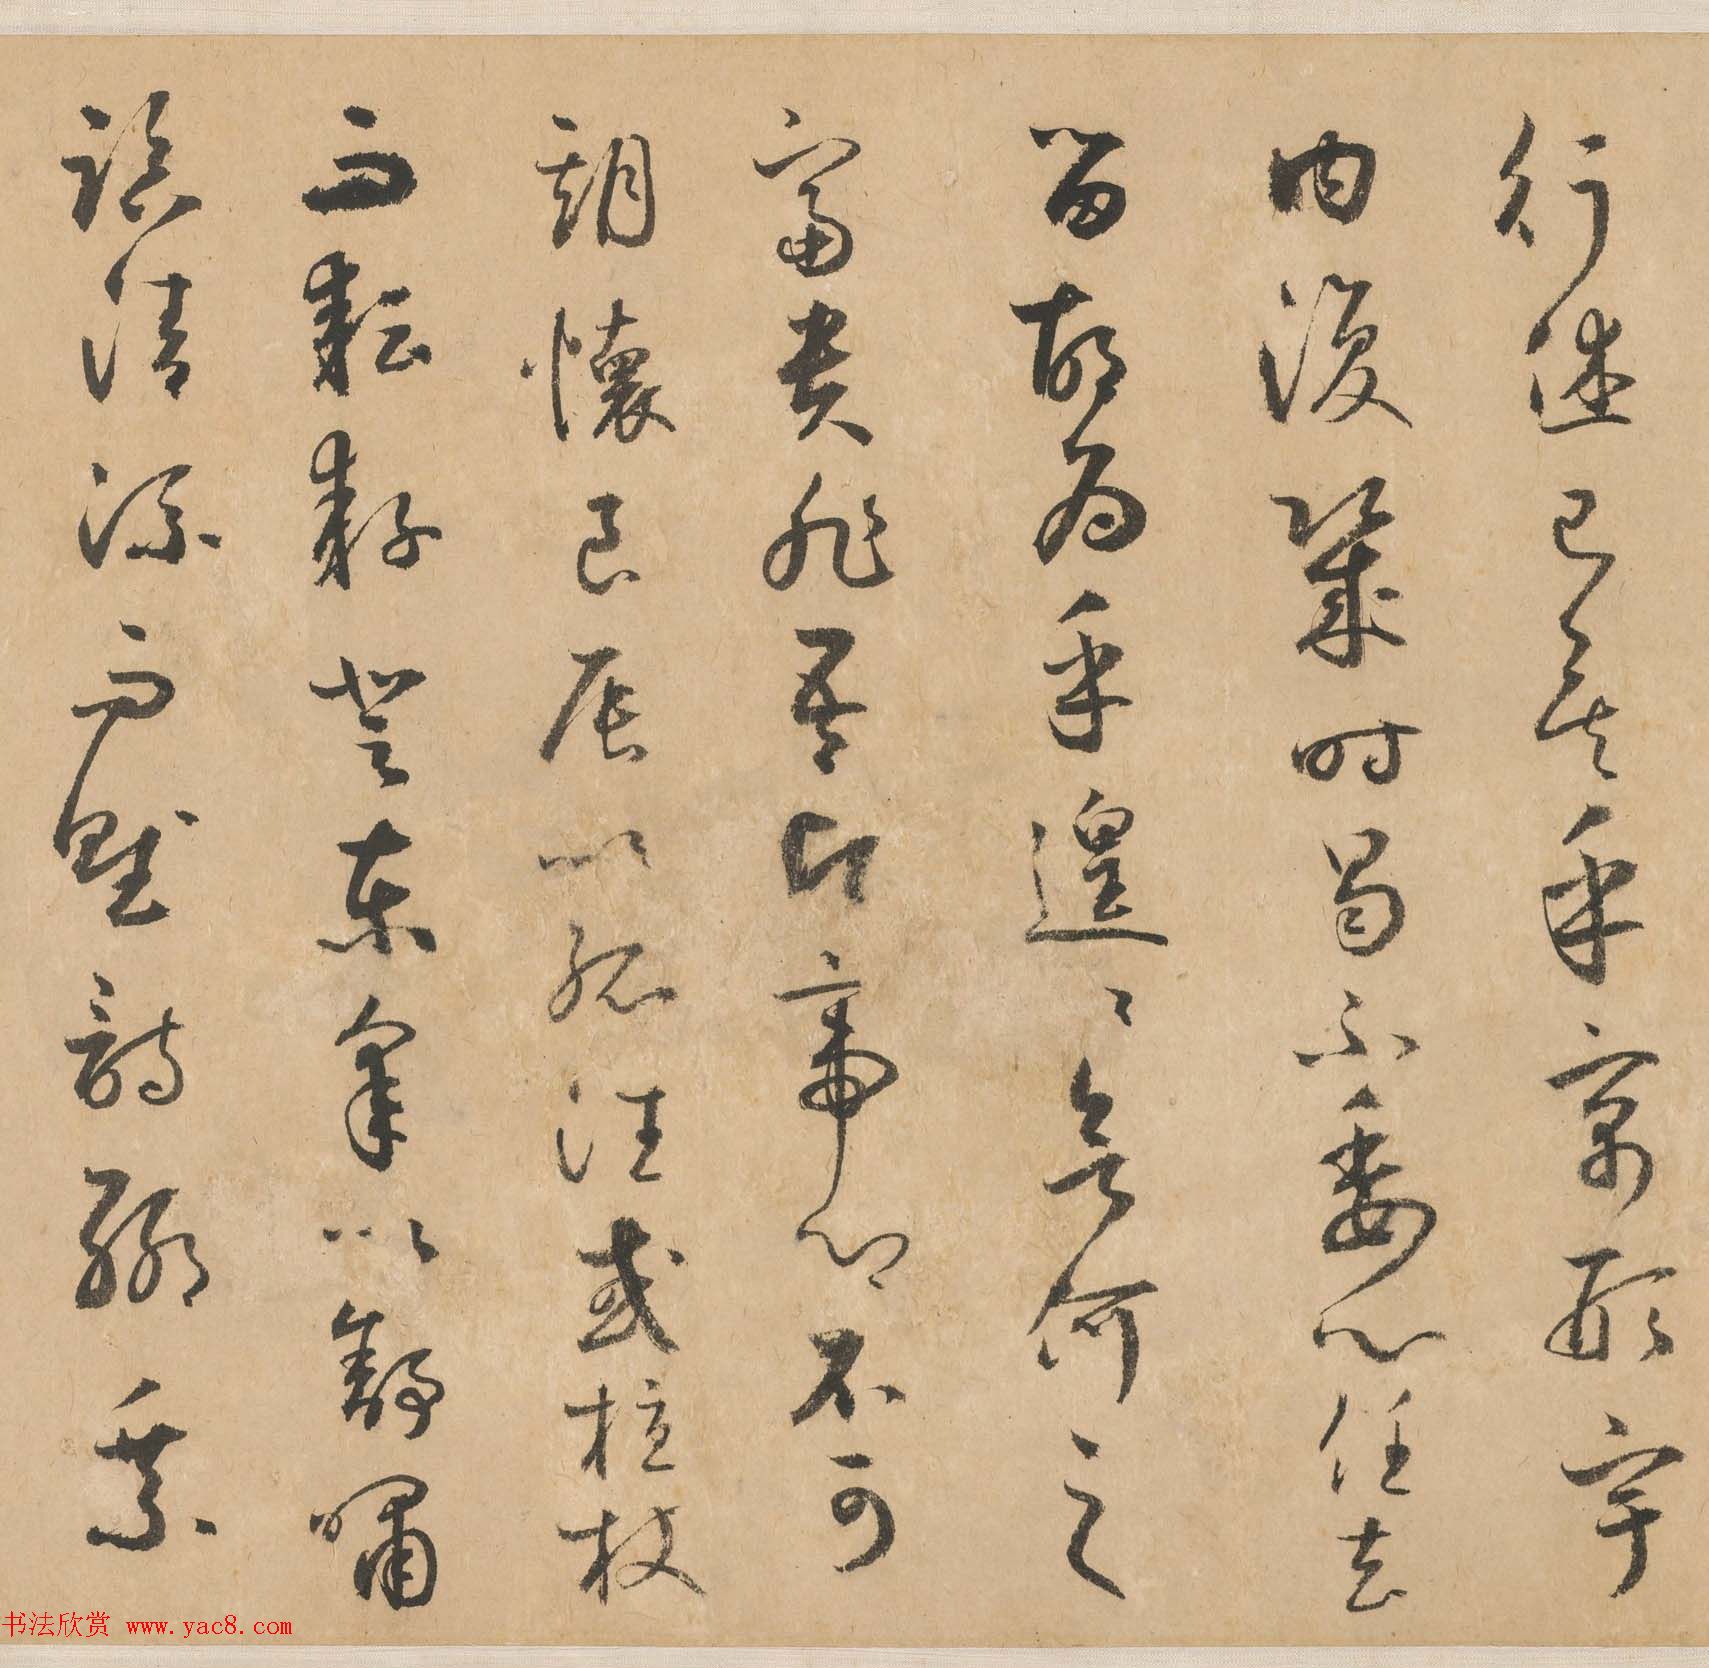 行已矣乎寓形宇
内復幾時曷不委心任去
留胡為乎遑〻何之
富貴非吾願帝鄉不可
期懷良辰以孤往或植杖
而耘耔登東皋以舒嘯
臨清流而賦詩聊乘
书法欣赏 www.yac8.com